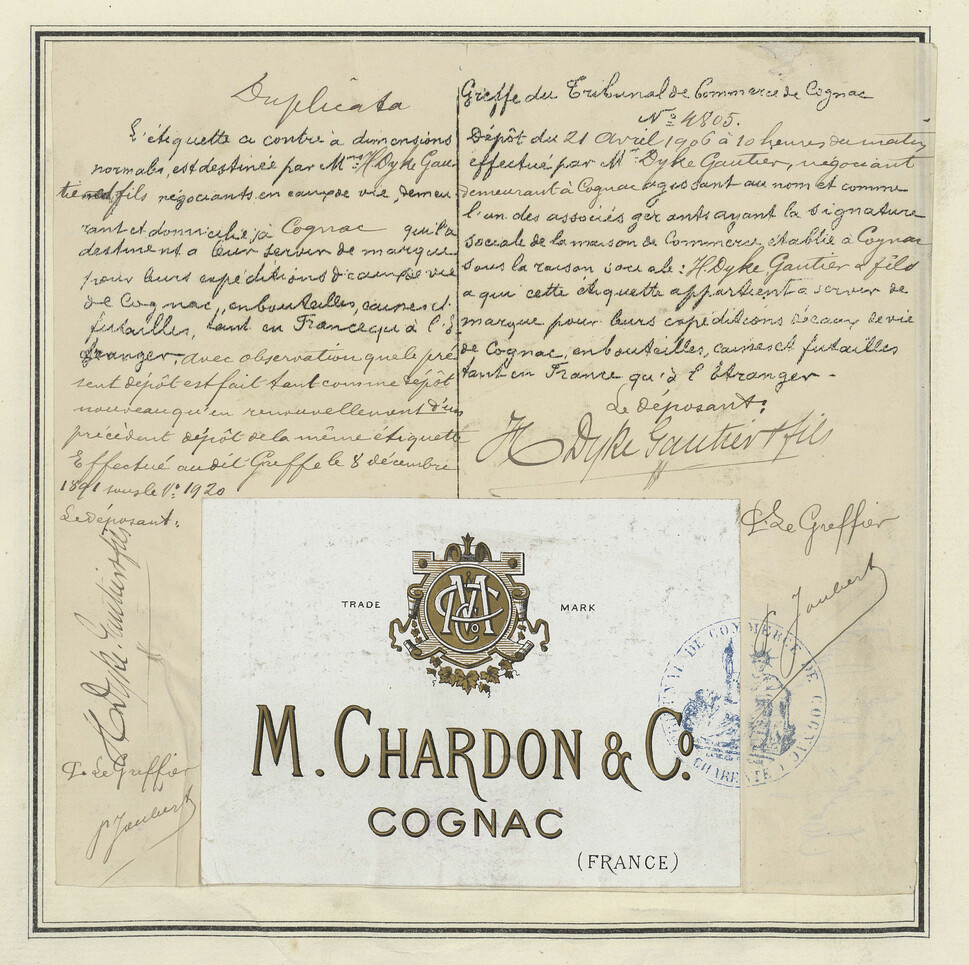 Duplicata
L'étiquette ci contre à dimensions
normales, est destinée par Mrs H. Dyke Gau-
tier & fils négociants en eaux de vie, demeu
rant et domiciliés à Cognac qu'il
destinent à leur servir de marque
pour leurs expéditions d'eaux de vie
de Cognac, en bouteilles, caisses et
futailles, tant en France qu'à l'É-
tranger, avec observation que le pré
sent dépôt est fait tant comme dépôt
nouveau qu'en renouvellement d'un
précédent dépôt de la même étiquette
Effectué audit Greffe le 8 décembre
1891 sous le No 1920
Le déposant:
H Dyke Gautier & fils
P. Le Greffier
P Joubert
Greffe du Tribunal de Commerce de Cognac
No 4805.
Dépôt du 21 Avril 1906 à 10 heures du matin,
effectué par Mr Dyke Gautier, négociant
demeurant à Cognac agissant au nom et comme
l'un des associés gérants ayant la signature
sociale de la maison de Commerce établie à Cognac
sous la raison sociale: H. Dyke Gautier & fils
a qui cette étiquette appartient a servir de
marque pour leurs expéditions d'eaux de vie
de Cognac, en bouteilles, caisses et futailles
tant en France qu'à l'Étranger -
Le déposant:
H Dyke Gautier & fils
P. Le Greffier
P Joubert
TRADE MARK
M. CHARDON & Co.
COGNAC
(FRANCE)
TRIBUNAL DE COMMERCE DE COGNAC
CHARENTE